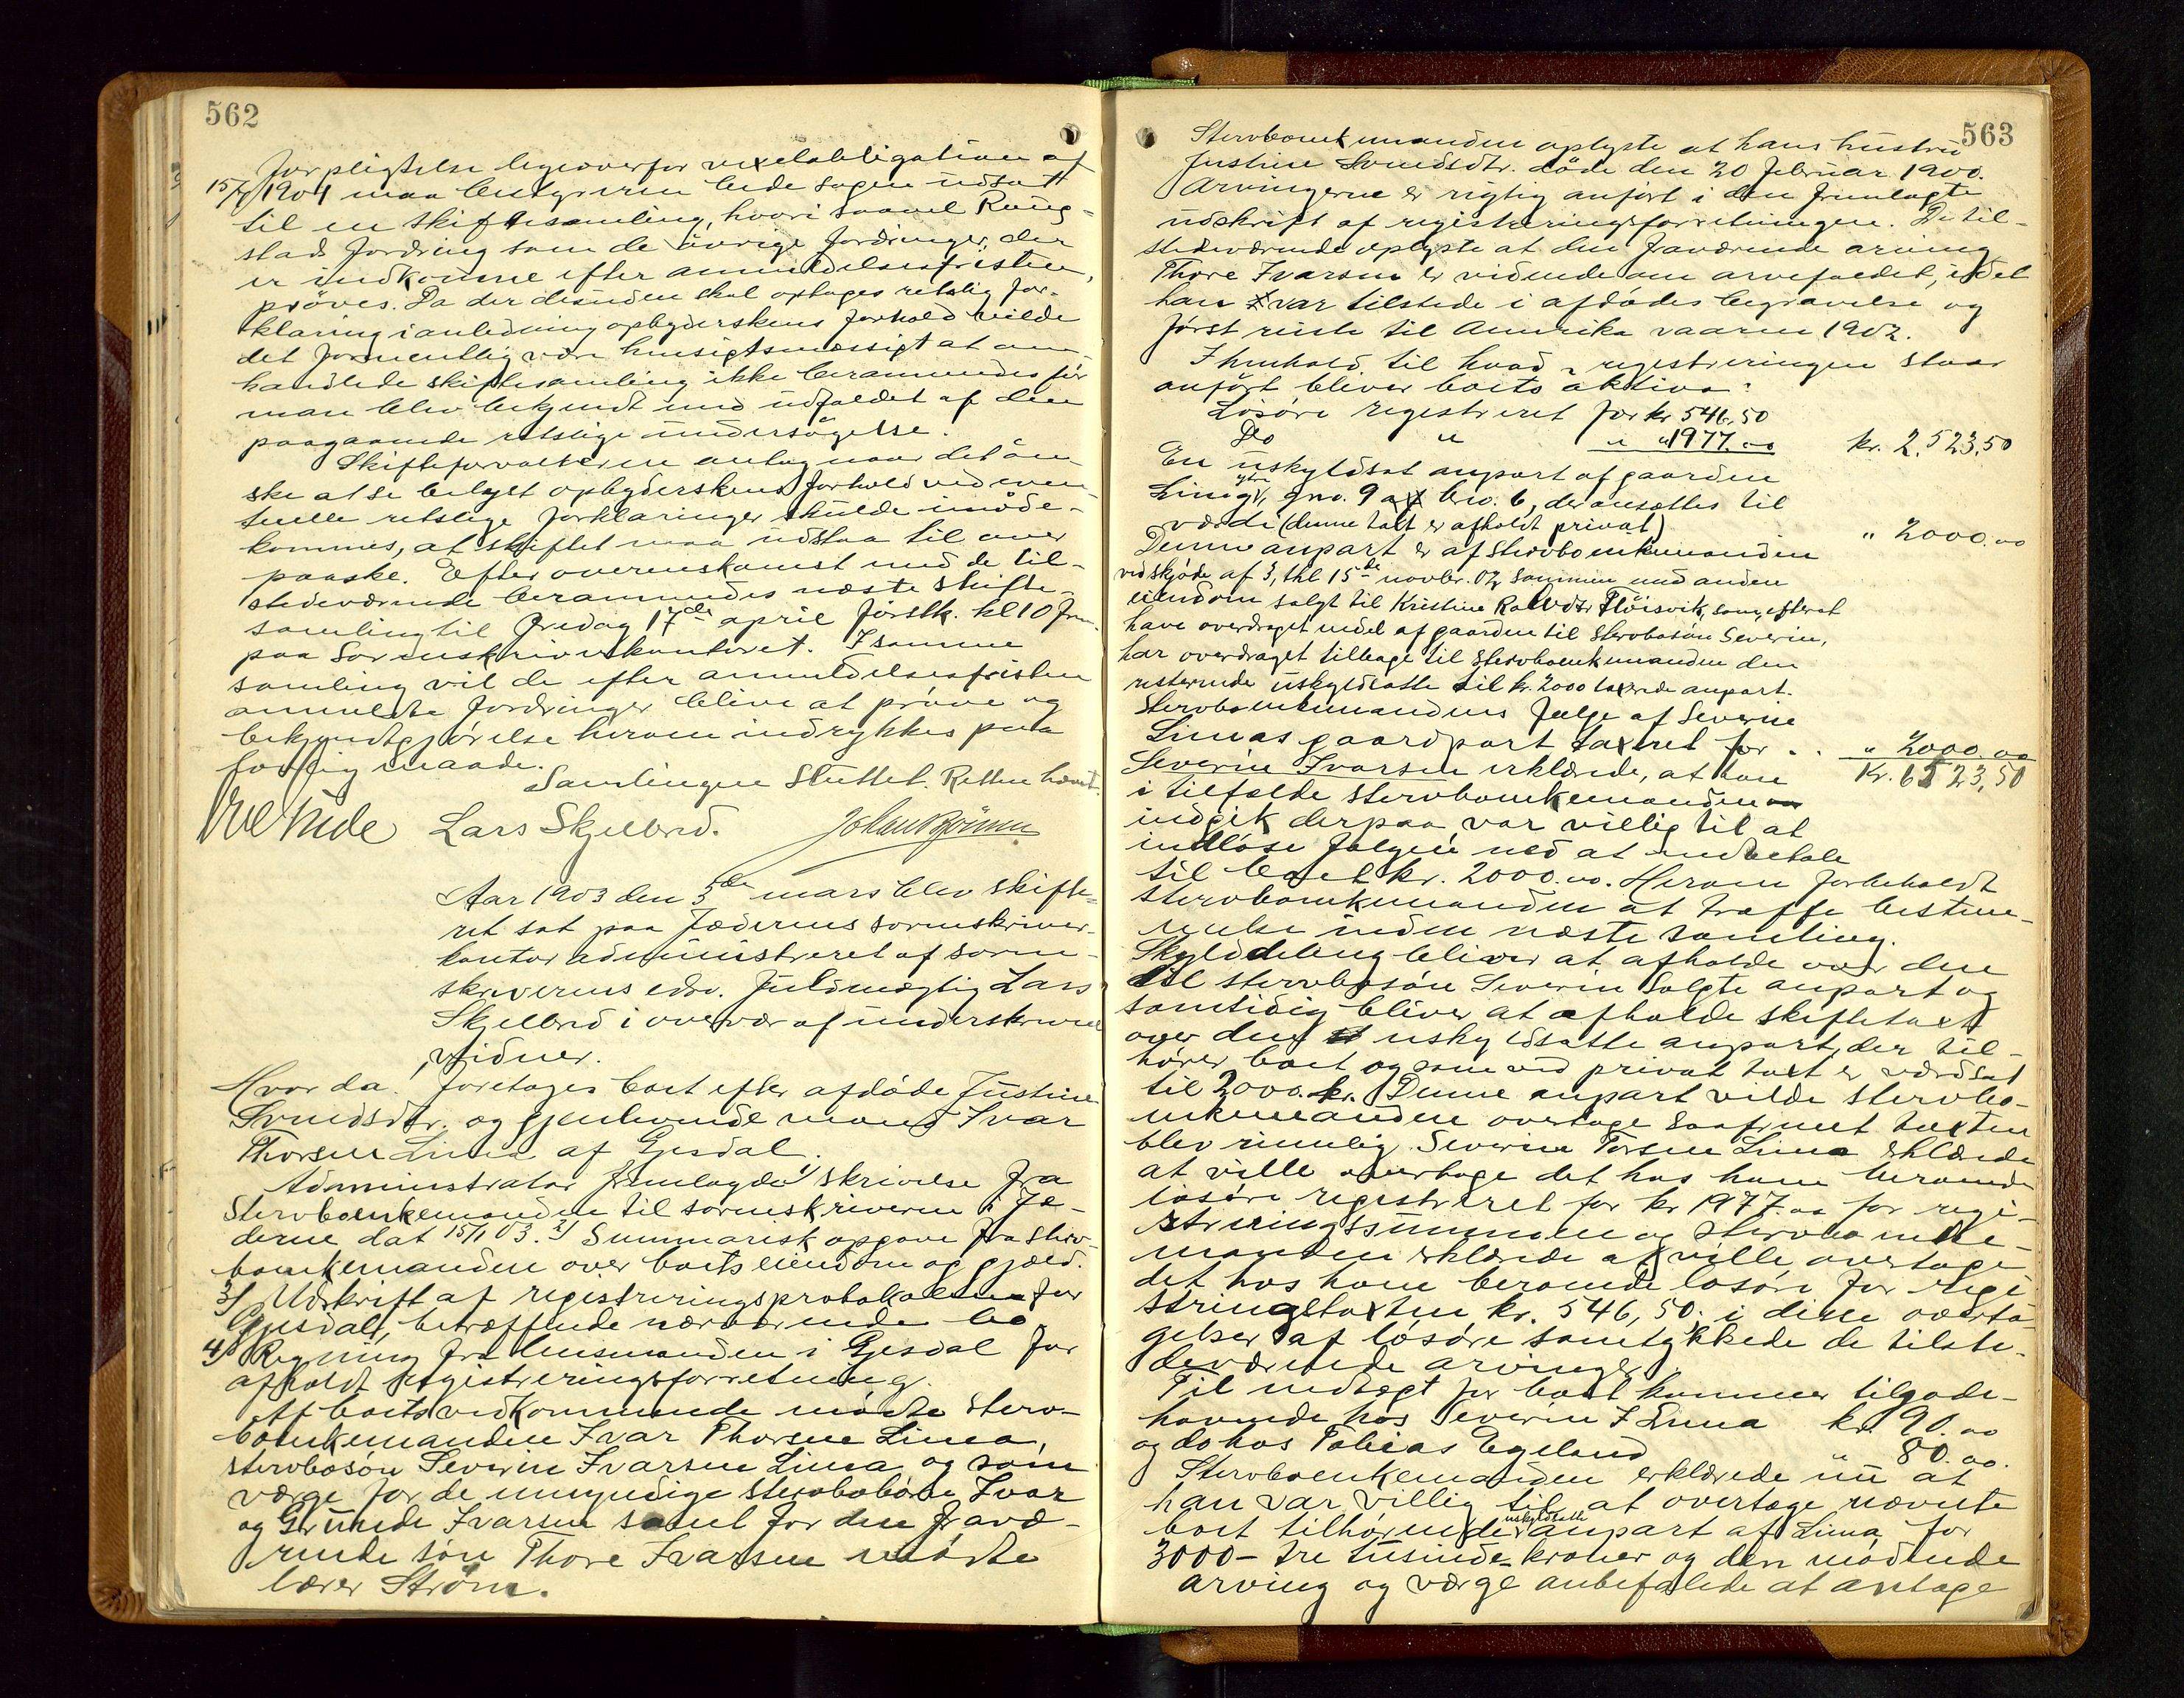 562
forpligtelse ligeoverfor vexelobligation af
15/4 1901 maa bestyreren bede sagen udsatt
til en skiftesamling, hvori saavel Rung-
stads fordring som de øvrige fordringer, der
er indkomne efter anmeldelsesfristen,
prøves. Da der desuden skal optages retslig for-
klaring i anledning opbyderskens forhold vilde
det formentlig være hensigtsmæssigt at om-
handlede skiftesamling ikke berammedes før
man blev bekjendt med udfaldet af den
paagaaende retslige undersøgelse.
Skifteforvalteren antog naar det øn-
ske at se belyst opbyderskens forhold ved even-
tuelle retslige forklaringer skulde imøde-
kommes, at skiftet maa udstaa til over
paaske. Efter overenskomst med de til-
stedeværende berammedes næste skifte-
samling til fredag 17de april førstk. kl 10 fm.
paa Sorenskriverkontoret. I samme
samling vil de efter anmeldelsesfristen
anmeldte fordringer blive at prøve og
bekjendtgjørelse herom indrykkes paa
lovlig maade.
Samlingen sluttet. Retten hævet.
Lars Skjelbred. Johan Bjørnsen
Aar 1903 den 3de mars blev skifte-
ret sat paa Jæderens sorenskriver-
kontor administreret af soren-
skriverens edsv. fuldmægtig Lars
Skjelbred i overvær af underskrevne
vidner.
Hvorda: foretages boet efter afdøde Justine
Svendsdtr. og gjenlevende mand Ivar
Thorsen Lima af Gjesdal.
Administrator fremlagde 1) skrivelse fra
Stervboenkemanden til sorenskriveren i Jæ-
deren dat 15/1 03. 2) Summarisk opgave fra sterv-
boenkemanden over boets eiendom og gjæld.
3) Udskrift af registreringsprotokollen for
Gjesdal, betræffende nærværende bo
4) Regning fra lensmanden i Gjesdal for
afholdt registreringsforretning.
Af boets vedkommende mødte sterv-
boenkemanden Ivar Thorsen Lima,
stervbosøn Severin Ivarsen Lima og som
værge for de umyndige stervbobørn Ivar
og Gerunde Ivarsen samt for den fravæ-
rende søn Thore Ivarsen mødte
lærer Strøm.
563
Stervboenkemanden oplyste at hans hustru
Justine Svendsdtr. døde den 20 februar 1900.
Arvingerne er rigtig anført i den fremlagte
udskrift af registreringsforretningen. De til-
stedeværende oplyste at den fraværende arving
Thore Ivarsen er vidende om arvefaldet, idet
han var tilstede i afdødes begravelse og
først reiste til Amerika vaaren 1902.
I henhold til hvad i registreringen staar
anført bliver boets aktiva:
Løsøre registreret for kr 546,50
Do " " " 1977.00 kr. 2,523,50
En uskyldsat anpart af gaarden
Lima ytre, gno. 9 af brno. 6, der ansættes til
værdi (denne takt er afholdt privat) " 2000.00
Denne anpart er af stervboenkemanden
ved skjøde af 3, thl 15de novbr. 02 sammen med anden
eiendom solgt til Kristine Flöisvik, som, efterat
have overdraget endel af gaarden til stervbosøn Severin,
har overdraget tilbage til stervboenkemanden den
resterende uskyldsatte til kr. 2000 taxerede anpart.
Stervboenkemandens følge af Severin
Limas gaardpart taxeret for . . " 2000.00
Kr. 6523,50
Severin Ivarsen erklærede, at han
i tilfælde stervboenkemanden
indgik derpaa var villig til at
indløse følgen ved at indbetale
til boet kr. 2000.00. Herom forbeholdt
stervboenkemanden at træffe bestem-
melse inden næste samling.
Skylddeling bliver at afholde over den
til stervbosøn Severin solgte anpart og
samtidig bliver at afholde skiftetaxt
over den uskyldsatte anpart, der til-
hører boet og som ved privat taxt er værdsat
til 2000 kr. Denne anpart vilde stervbo-
enkemanden overtage saafremt taxten
blev rimelig. Severin Torsen Lima erklærede
at ville overtage det hos ham beroende
løsøre registreret for kr 1977.00 for regi-
streringssummen og stervboenke-
manden erklærede at ville overtage
det hos ham beroende løsøre for regi-
streringstaxten kr. 546,50. i disse overta-
gelser af løsøre samtykkede de tilste-
deværende arvinger.
Til indtægt for boet kommer tilgode-
havende hos Severin I Lima kr. 90.00
og do hos Tobias Egeland " 80.00.
Stervboenkemanden erklærede nu at
han var villig til at overtage nævnte
boet tilhørende uskyldsatte anpart af Lima for
3000 - tre tusinde kroner og den mødende
arving og værge anbefalede at antage